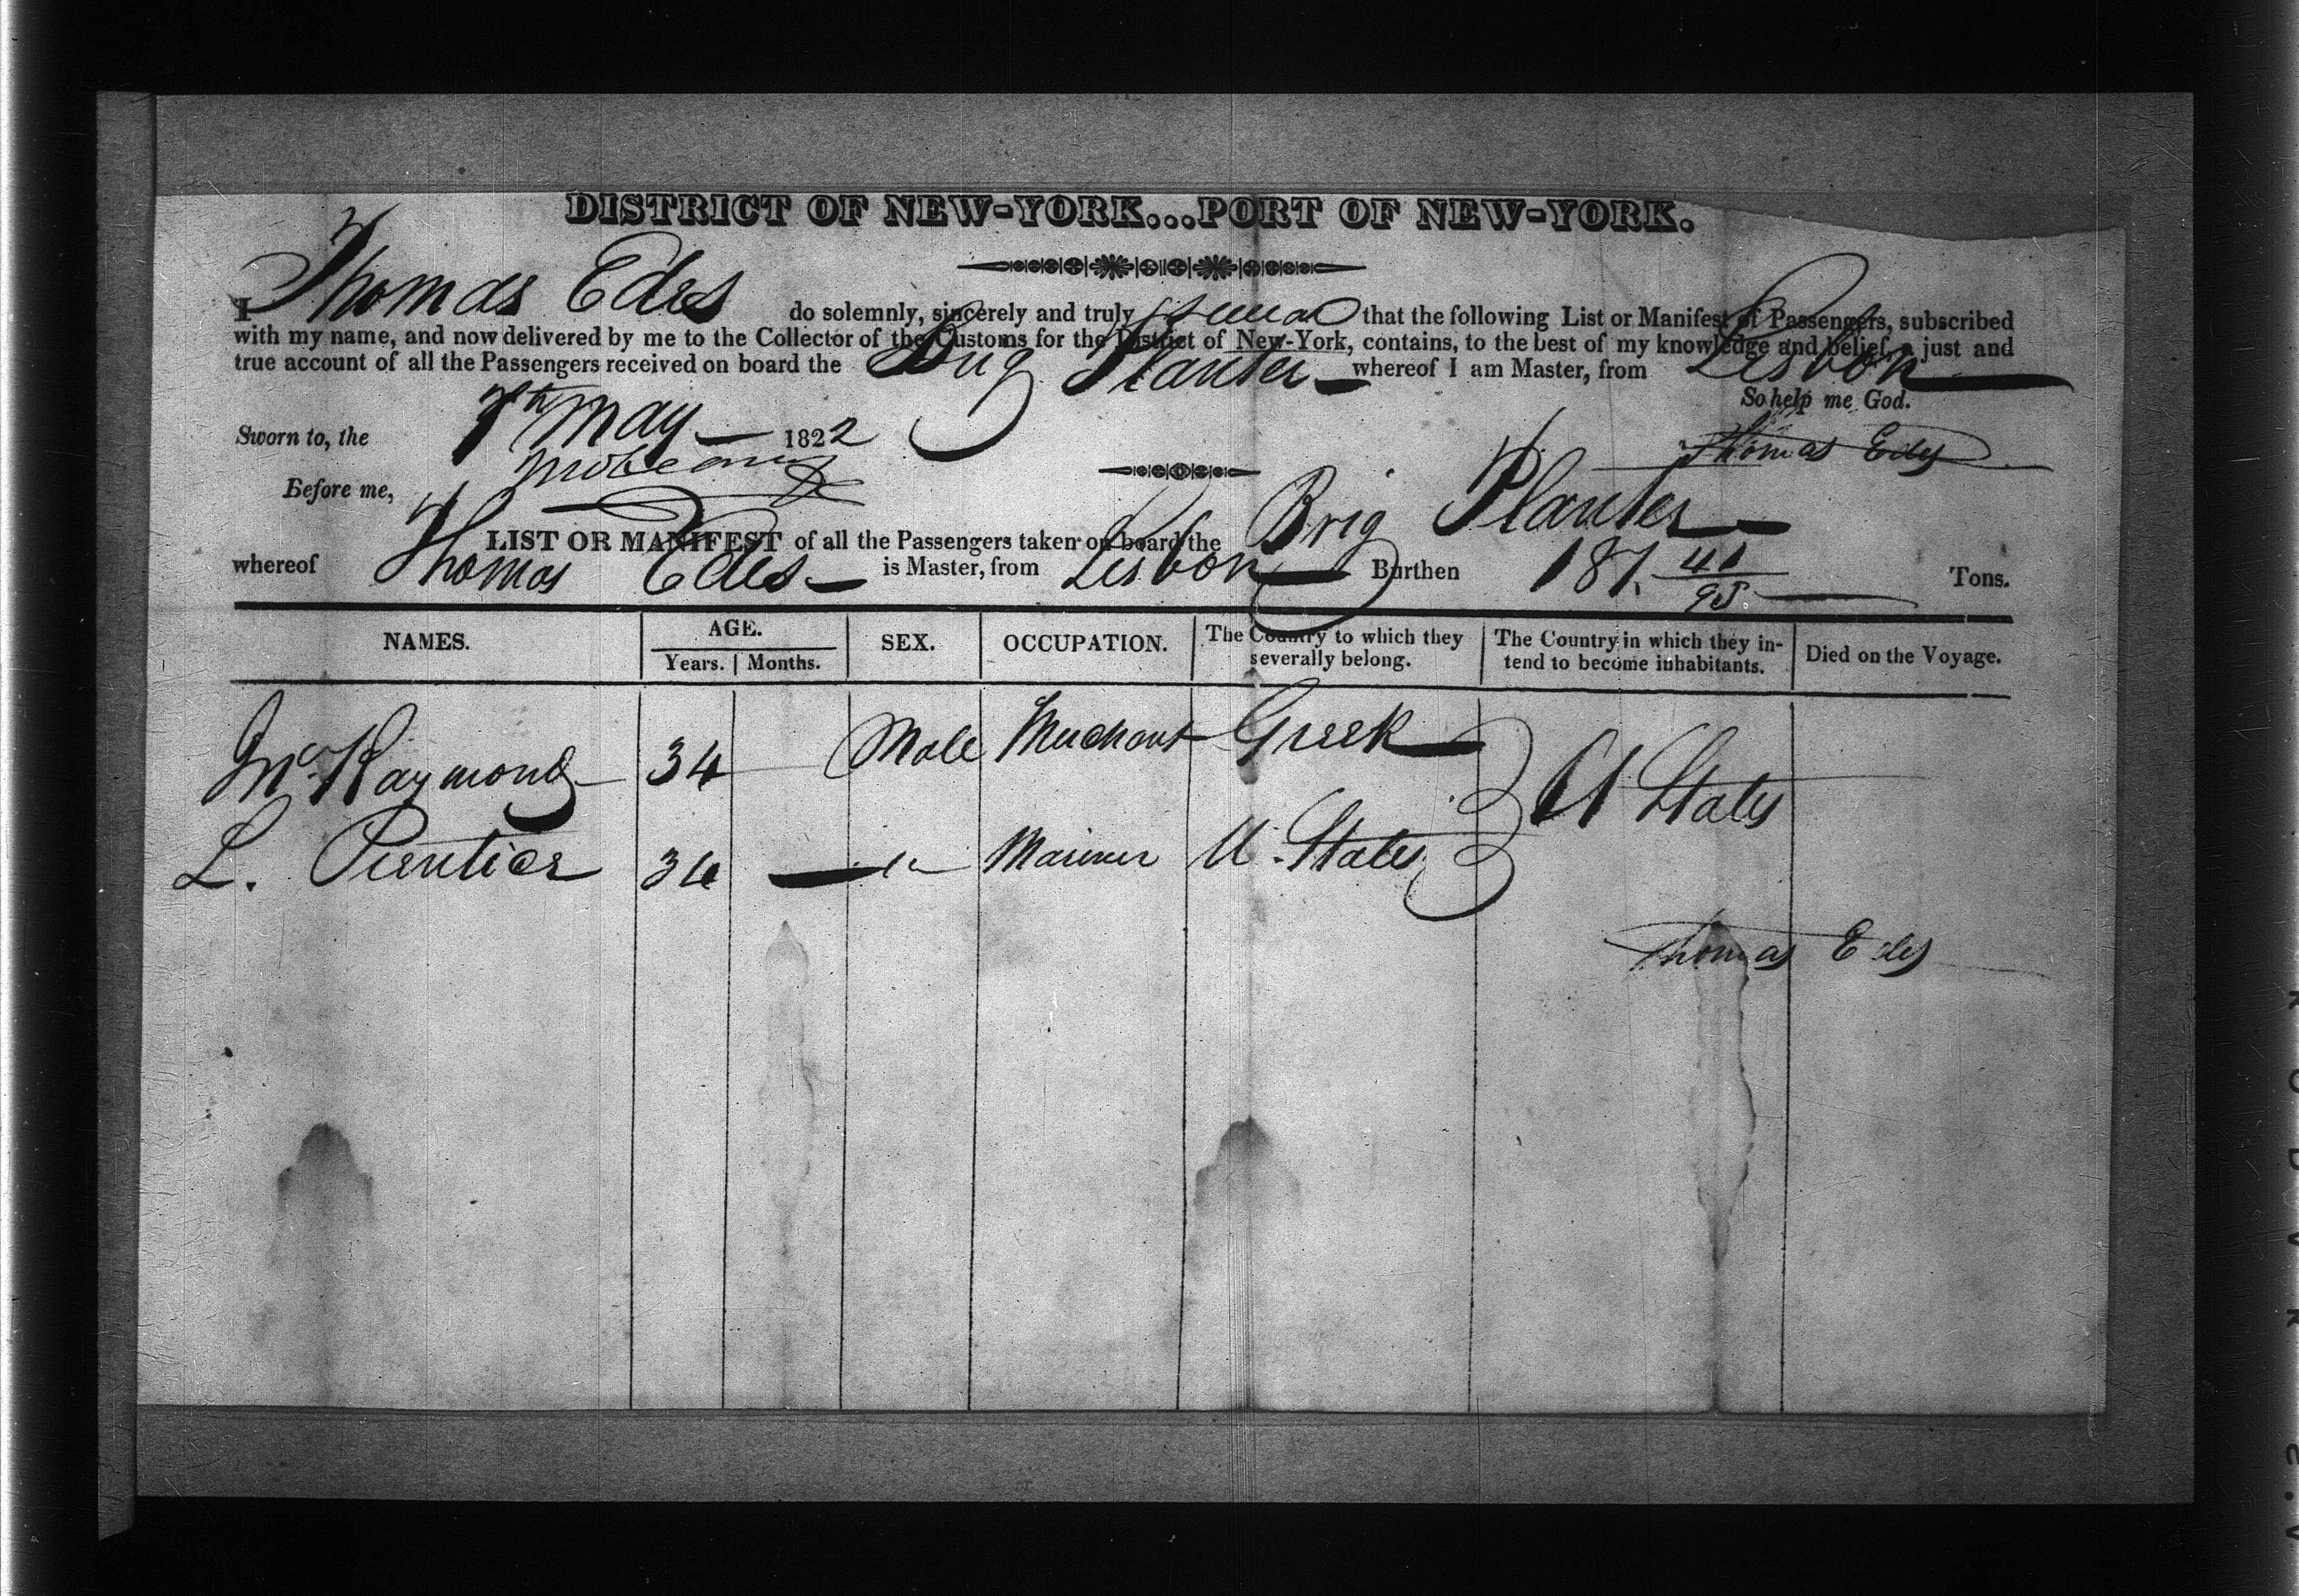 DISTRICT OF NEW-YORK...PORT OF NEW-YORK.
I Thomas Edes do solemnly, sincerely and truly swear that the following List or Manifest of Passengers, subscribed
with my name, and now delivered by me to the Collector of the Customs for the District of New-York, contains, to the best of my knowledge and belief, a just and
true account of all the Passengers received on board the Brig Planter whereof I am Master, from Lisbon
So help me God.
Sworn to, the May 1822
Thomas Edes
Before me,
LIST OR MANIFEST of all the Passengers taken on board the Brig Planter
whereof Thomas Edes is Master, from Lisbon Burthen 187. 41/95 Tons.
NAMES. AGE. Years. Months. SEX. OCCUPATION. The Country to which they severally belong. The Country in which they intend to become inhabitants. Died on the Voyage.
Raymond 34 Male Merchant Greek U States
L. Mariner U. States
Thomas Edes